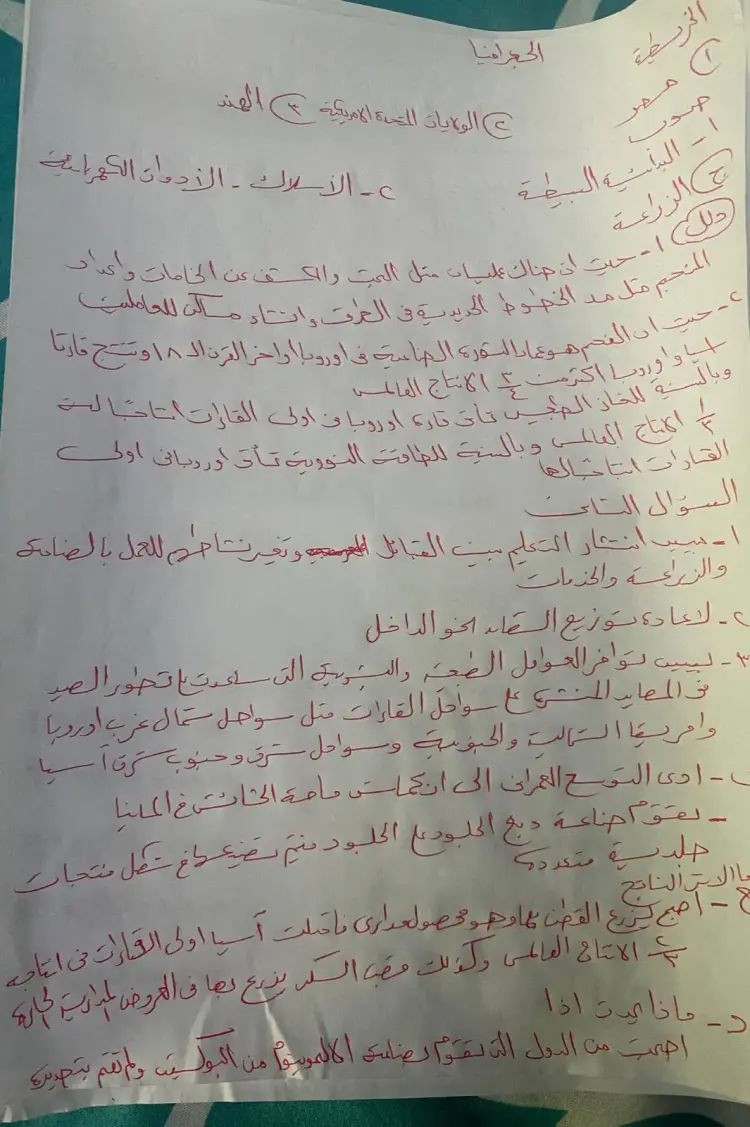 الجغرافيا
الخريطة
① مصر
② الولايات المتحدة الامريكية ③ الهند
صوب
١- البدائية البسيطة
٢- الأسلاك - الأدوات الكهربائية
ج الزراعة
دلل ١- حيث ان هناك عمليات مثل البحث والكشف عن الخامات واعداد
المنجم مثل مد الخطوط الحديدية فى الطرق وانشاء مساكن للعاملين
٢- حيث ان الفحم هو عماد الثورة الصناعية فى اوروبا اواخر القرن الـ ١٨ وتنتج قارتا
اسيا واوروبا اكثر من ٣/٤ الانتاج العالمى
وبالنسبة للغاز الطبيعى تأتى قارة اوروبا فى اولى القارات انتاجا له
١/٣ الانتاج العالمى وبالنسبة للطاقة النووية تأتى اوروبا فى اولى
القارات انتاجا لها
السؤال الثانى
١- بسبب انتشار التعليم بين القبائل وتغير نشاطهم للعمل بالصناعة
والزراعة والخدمات
٢- لاعادة توزيع السكان نحو الداخل
٣- بسبب توافر العوامل الطبيعية والبشرية التى ساعدت على تطور الصيد
فى المصايد المنتشرة على سواحل القارات مثل سواحل شمال غرب اوروبا
وامريكا الشمالية والجنوبية وسواحل شرق وجنوب شرق آسيا
ب - ادى التوسع العمرانى الى انكماش مساحة الحشائش فى المانيا
- تقوم صناعة دبغ الجلود على الجلود فيتم تصنيعها فى شكل منتجات
جلدية متعددة
ما الاثر الناتج
ج - اصبح يزرع القطن بها وهو محصول مدارى فاحتلت آسيا اولى القارات فى انتاجه
٢/٣ الانتاج العالمى وكذلك قصب السكر يزرع بها فى العروض المدارية الحارة
د - ماذا يحدث اذا
اصبحت من الدول التى تقوم بصناعة الالمونيوم من البوكسيت ولم تقم بتصديره